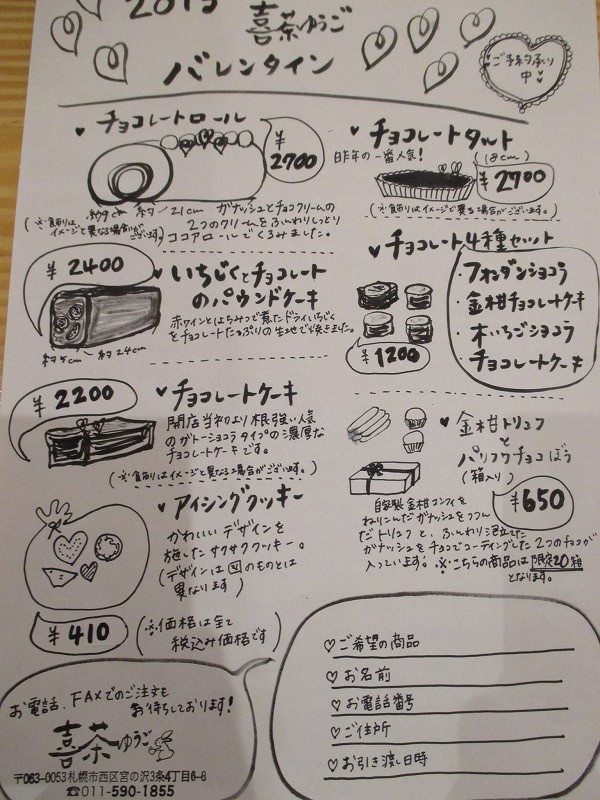 2015
喜茶ゆうご
バレンタイン
ご予約承り
中
チョコレートロール
¥2700
約9cm 約21cm ガナッシュとチョコクリームの
2つのクリームをふんわりしっとり
ココアロールでくるみました。
(※飾りは
イメージと異なる場合が
ございます)
チョコレートタルト
昨年の一番人気!
(18cm)
¥2700
(※飾りはイメージと異なる場合がございます。)
¥2400
いちじくとチョコレート
のパウンドケーキ
赤ワインとはちみつで煮たドライいちじく
をチョコたっぷりの生地で焼きました。
約24cm
チョコレート4種セット
・フォンダンショコラ
・金柑チョコレートケーキ
・木いちごショコラ
・チョコレートケーキ
¥1200
¥2200
チョコレートケーキ
開店当初より根強い人気
のガトーショコラタイプの濃厚な
チョコレートケーキです。
(※飾りはイメージと異なる場合がございます。)
金柑トリュフ
と
パリフワチョコぼう
(箱入り)
¥650
自家製金柑コンフィを
ねりこんだガナッシュをつつん
だトリュフと、ふんわり泡立てた
ガナッシュをチョコでコーティングした2つのチョコが
入っています。※こちらの商品は限定20箱
となります。
アイシングクッキー
かわいいデザインを
施したサクサククッキー。
(デザインは図のものとは
異なります)
¥410
(※価格は全て
税込み価格です)
お電話、FAXでのご注文も
お待ちしております!
喜茶ゆうご
〒063-0053札幌市西区宮の沢3条4丁目6-8
☎011-590-1855
♡ご希望の商品
♡お名前
♡お電話番号
♡ご住所
♡お引き渡し日時